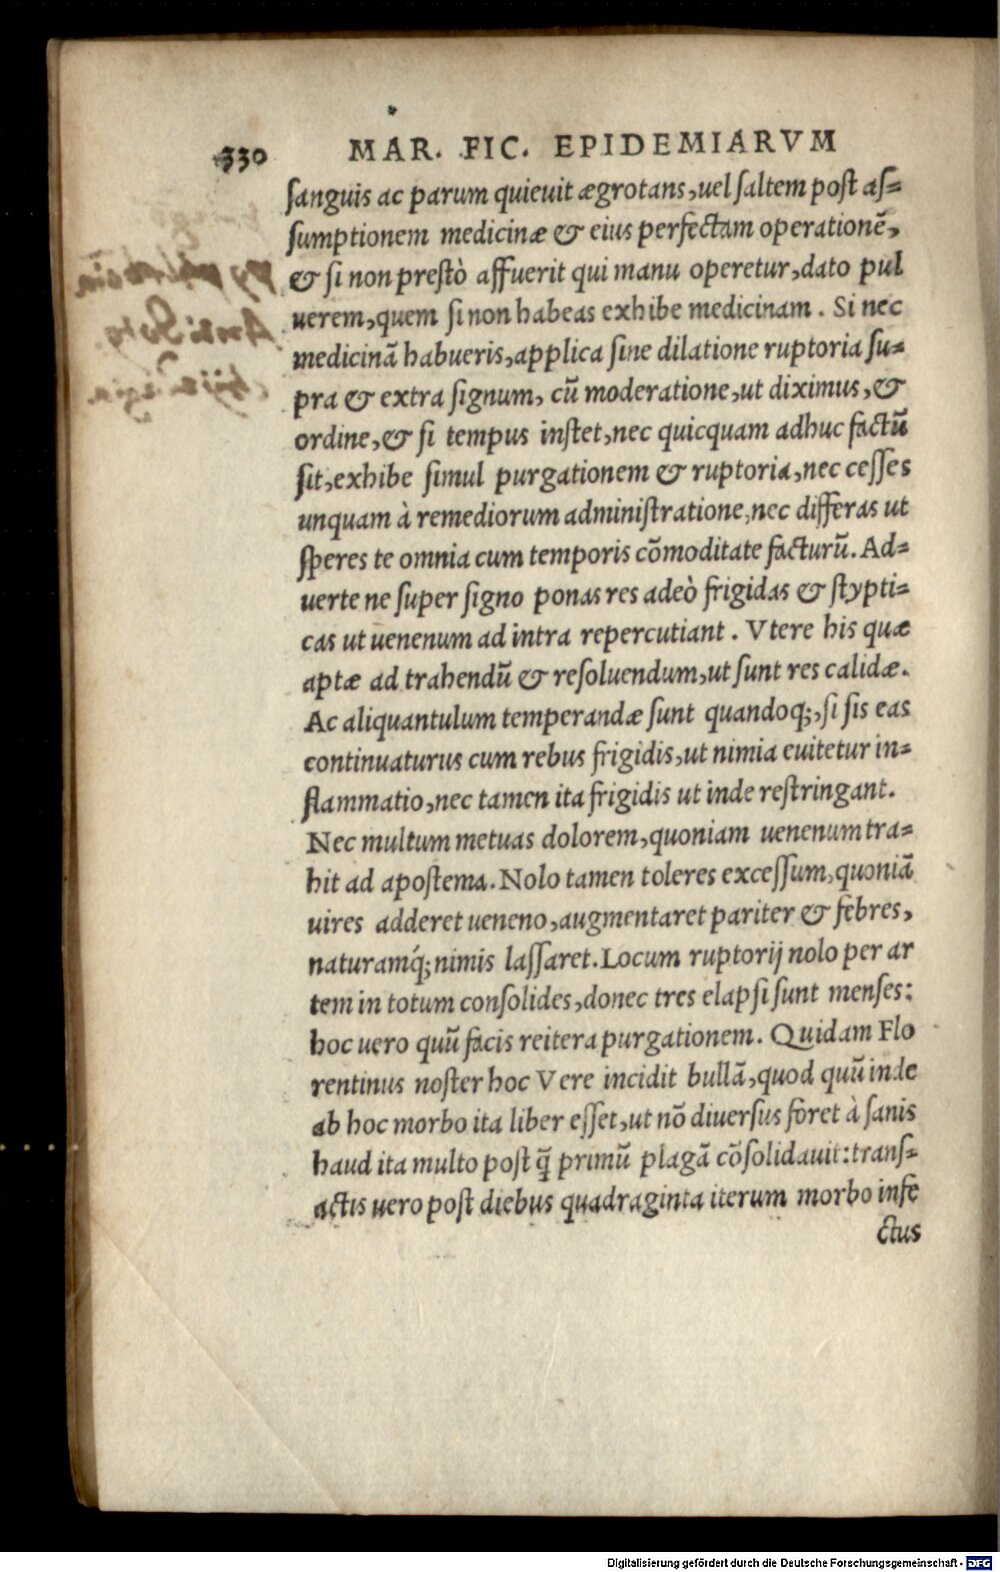 330 MAR. FIC. EPIDEMIARVM
ſanguis ac parum quieuit ægrotans, uel ſaltem poſt aſ=
ſumptionem medicinæ & eius perfectam operationē,
& ſi non preſtò affuerit qui manu operetur, dato pul
uerem, quem ſi non habeas exhibe medicinam. Si nec
medicinā habueris, applica ſine dilatione ruptoria ſu=
pra & extra ſignum, cū moderatione, ut diximus, &
ordine, & ſi tempus inſtet, nec quicquam adhuc factū
ſit, exhibe ſimul purgationem & ruptoria, nec ceſſes
unquam à remediorum adminiſtratione, nec differas ut
ſperes te omnia cum temporis cōmoditate facturū. Ad=
uerte ne ſuper ſigno ponas res adeò frigidas & ſtypti=
cas ut uenenum ad intra repercutiant. Vtere his quæ
aptæ ad trahendū & reſoluendum, ut ſunt res calidæ.
Ac aliquantulum temperandæ ſunt quandoq;, ſi ſis eas
continuaturus cum rebus frigidis, ut nimia euitetur in=
flammatio, nec tamen ita frigidis ut inde reſtringant.
Nec multum metuas dolorem, quoniam uenenum tra=
hit ad apoſtema. Nolo tamen toleres exceſſum, quoniā
uires adderet ueneno, augmentaret pariter & febres,
naturamq́; nimis laſſaret. Locum ruptorij nolo per ar
tem in totum conſolides, donec tres elapſi ſunt menſes:
hoc uero quū facis reitera purgationem. Quidam Flo
rentinus noſter hoc Vere incidit bullā, quod quū inde
ab hoc morbo ita liber eſſet, ut nō diuerſus foret à ſanis
haud ita multo poſt q̄ primū plagā cōſolidauit: tranſ=
actis uero poſt diebus quadraginta iterum morbo infe
ctus
Digitalisierung gefördert durch die Deutsche Forschungsgemeinschaft - DFG